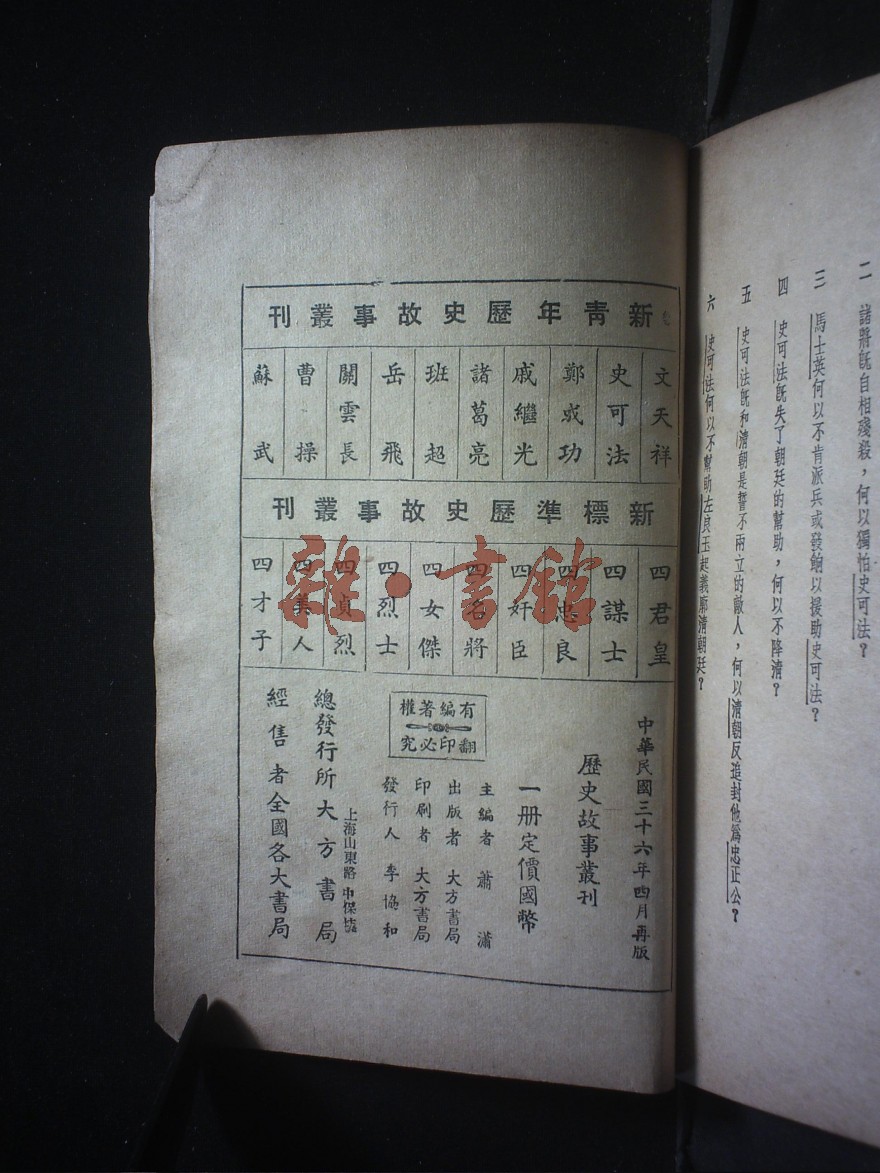 二　諸將旣自相殘殺，何以獨怕史可法？
三　馬士英何以不肯派兵或發餉以援助史可法？
四　史可法旣失了朝廷的幫助，何以不降清？
五　史可法旣和清朝是誓不兩立的敵人，何以清朝反追封他爲忠正公？
六　史可法何以不幫助左良玉起義廓清朝廷？
新青年歷史故事叢刊
文天祥
史可法
鄭成功
戚繼光
諸葛亮
班超
岳飛
關雲長
曹操
蘇武
新標準歷史故事叢刊
四君皇
四謀士
四忠良
四奸臣
四名將
四女傑
四烈士
四貞烈
四美人
四才子
中華民國三十六年四月再版
歷史故事叢刊
一册定價國幣
有編著權
翻印必究
主編者　蕭瀟
出版者　大方書局
印刷者　大方書局
發行人　李協和
上海山東路中保坊
總發行所大方書局
經售者全國各大書局
雜·書館